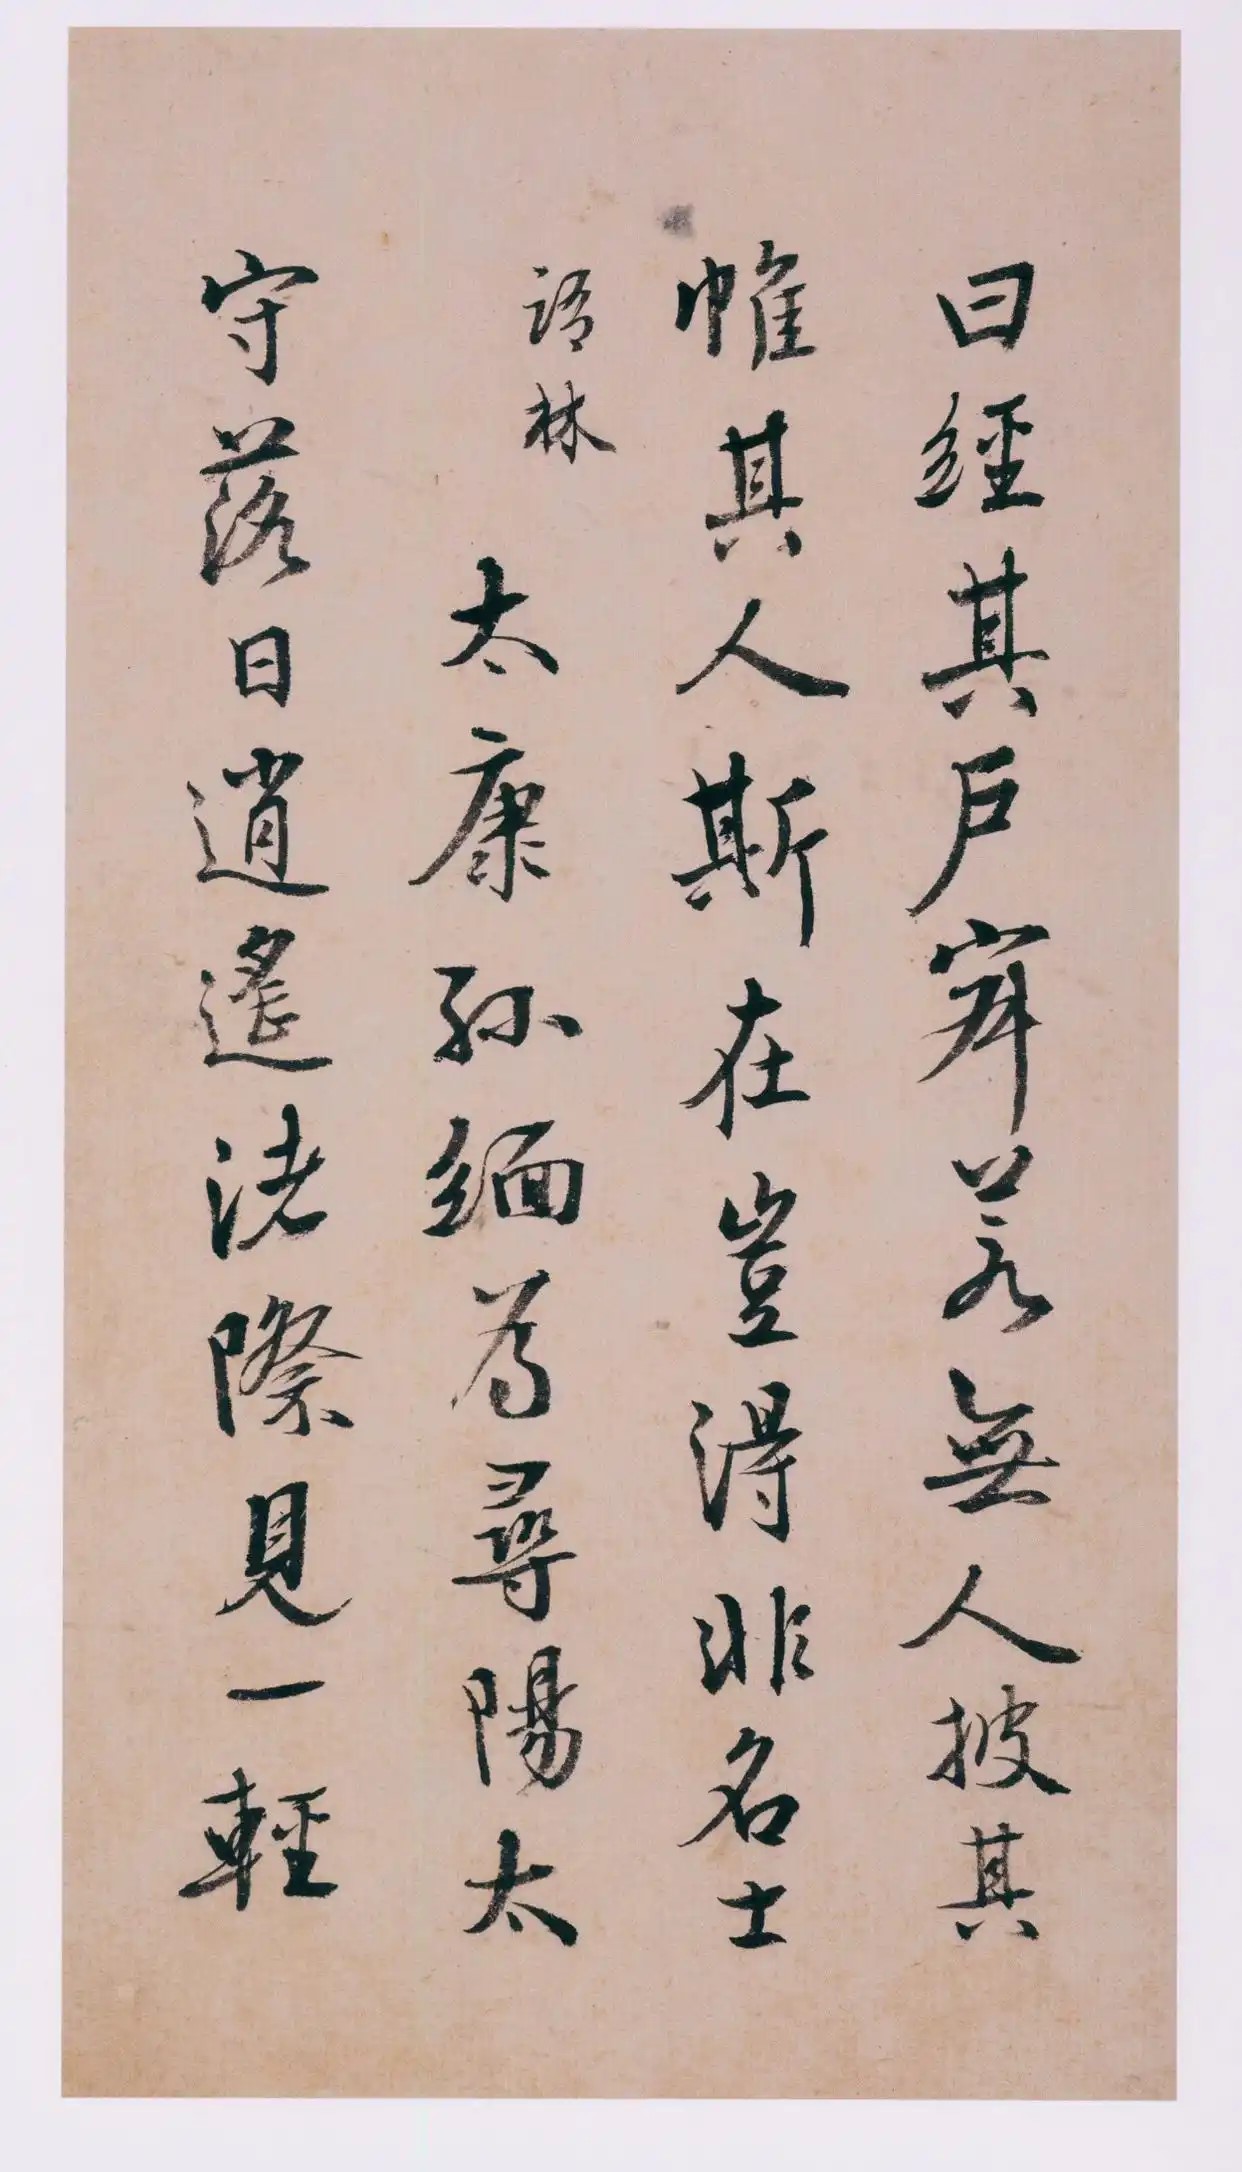 曰經其戶寂若無人披其
帷其人斯在豈得非名士
語林
太康孫緬為尋陽太
守落日逍遙渚際見一輕